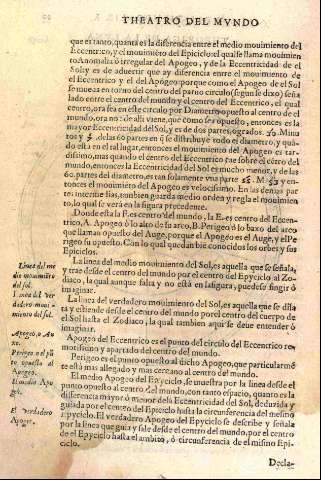 THEATRO DEL MVNDO
que es tanto, quanta es la diferencia entre el medio mouimiento del
Eccentrico, y el mouimiento del Epiciclo: el qual se llama mouimien
to Anomalia ò irregular del Apogeo, y de la Eccentricidad de el
Sol: y es de aduertir que ay diferencia entre el mouimiento de
el Eccentrico y el del Apogeo: porque como el Apogeo de el Sol
se mueua en torno del centro del paruo circulo (segun se dixo) seña
lado entre el centro del mundo y el centro del Eccentrico, el qual
centro, ora sea en este circulo por Diametro opuesto al centro de el
mundo, ora no: de alli viene, que como sea opuesto, entonces es la
mayor Eccentricidad del Sol, y es de dos partes, ogrados. Minu
tos y de las 60 partes en q̃ se distribuye todo el diametro, y quã-
do esta en el tal lugar, entonces el mouimiento del Apogeo es tar-
dissimo, mas quando el centro del Eccentrico fue sobre el cẽtro del
mundo, entonces la Eccentricidad del Sol es mucho menor, y de las
60. partes del diametro, es tan solamente vna parte M. y en-
tonces el mouimiẽto del Apogeo es velocissimo. En las demas par
tes intermedias, tambien guarda medio orden y regla el mouimien
to, lo qual se verà en la figura precedente.
Donde esta la F. es centro del mundo, la E. es centro del Eccen-
trico, A. Apogeo ò lo alto de su arco, B. Perigeo ò lo baxo del arco
que llaman opuesto del Auge, porque el Apogeo es el Auge, y el Pe
rigeo su opuesto. Con lo qual quedan biẽ conocidos los orbes y sus
Epiciclos.
La linea del medio mouimiento del Sol, es aquella que se señala,
y trae desde el centro del mundo por el centro del Epyciclo al Zo-
diaco, la qual aunque falta y no està en la figura, puedese fingir ò
imaginar.
La linea del verdadero mouimiento del Sol, es aquella que se dila
ta y estiende desde el centro del mundo por el centro del cuerpo de
el Sol hasta el Zodiaco, la qual tambien aqui se deue entender ò
imaginar.
Apogeo del Eccentrico es el punto del circulo del Eccentrico re-
motissimo y apartado del centro del mundo.
Perigeo es el punto opuesto al dicho Apogeo, que particularmẽ
te està mas allegado y mas cercano al centro del mundo.
El medio Apogeo del Epyciclo, se muestra por la linea desde el
punto opuesto al centro del mundo, con tanto espacio, quanto es la
diferencia mayor ò menor de la Eccentricidad del Sol, deduzida y
guiada por el centro del Epyciclo hasta la circunferencia del mesmo
epyciclo. El verdadero Apogeo del Epyciclo se describe y señala
por la linea que guia y sale desde el centro del mundo, por el centro
de el Epyciclo hasta el ambito, ò circunferencia de el mismo Epi-
ciclo.
Decla-
Linea del me
dio mouimiẽto
del sol.
Linea del ver
dadero moui
miento del sol.
Apogeo, o Au
xe.
Perigeo o el pũ
to opuesto al
Apogeo.
El medio Apo
geo.
El verdadero
Apogeo.